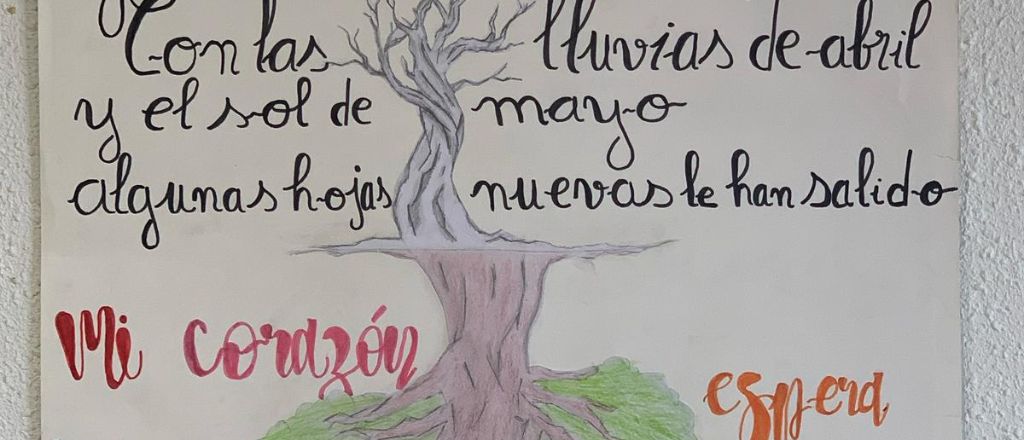 Con las lluvias de abril
y el sol de mayo
algunas hojas nuevas le han salido
Mi corazón espera